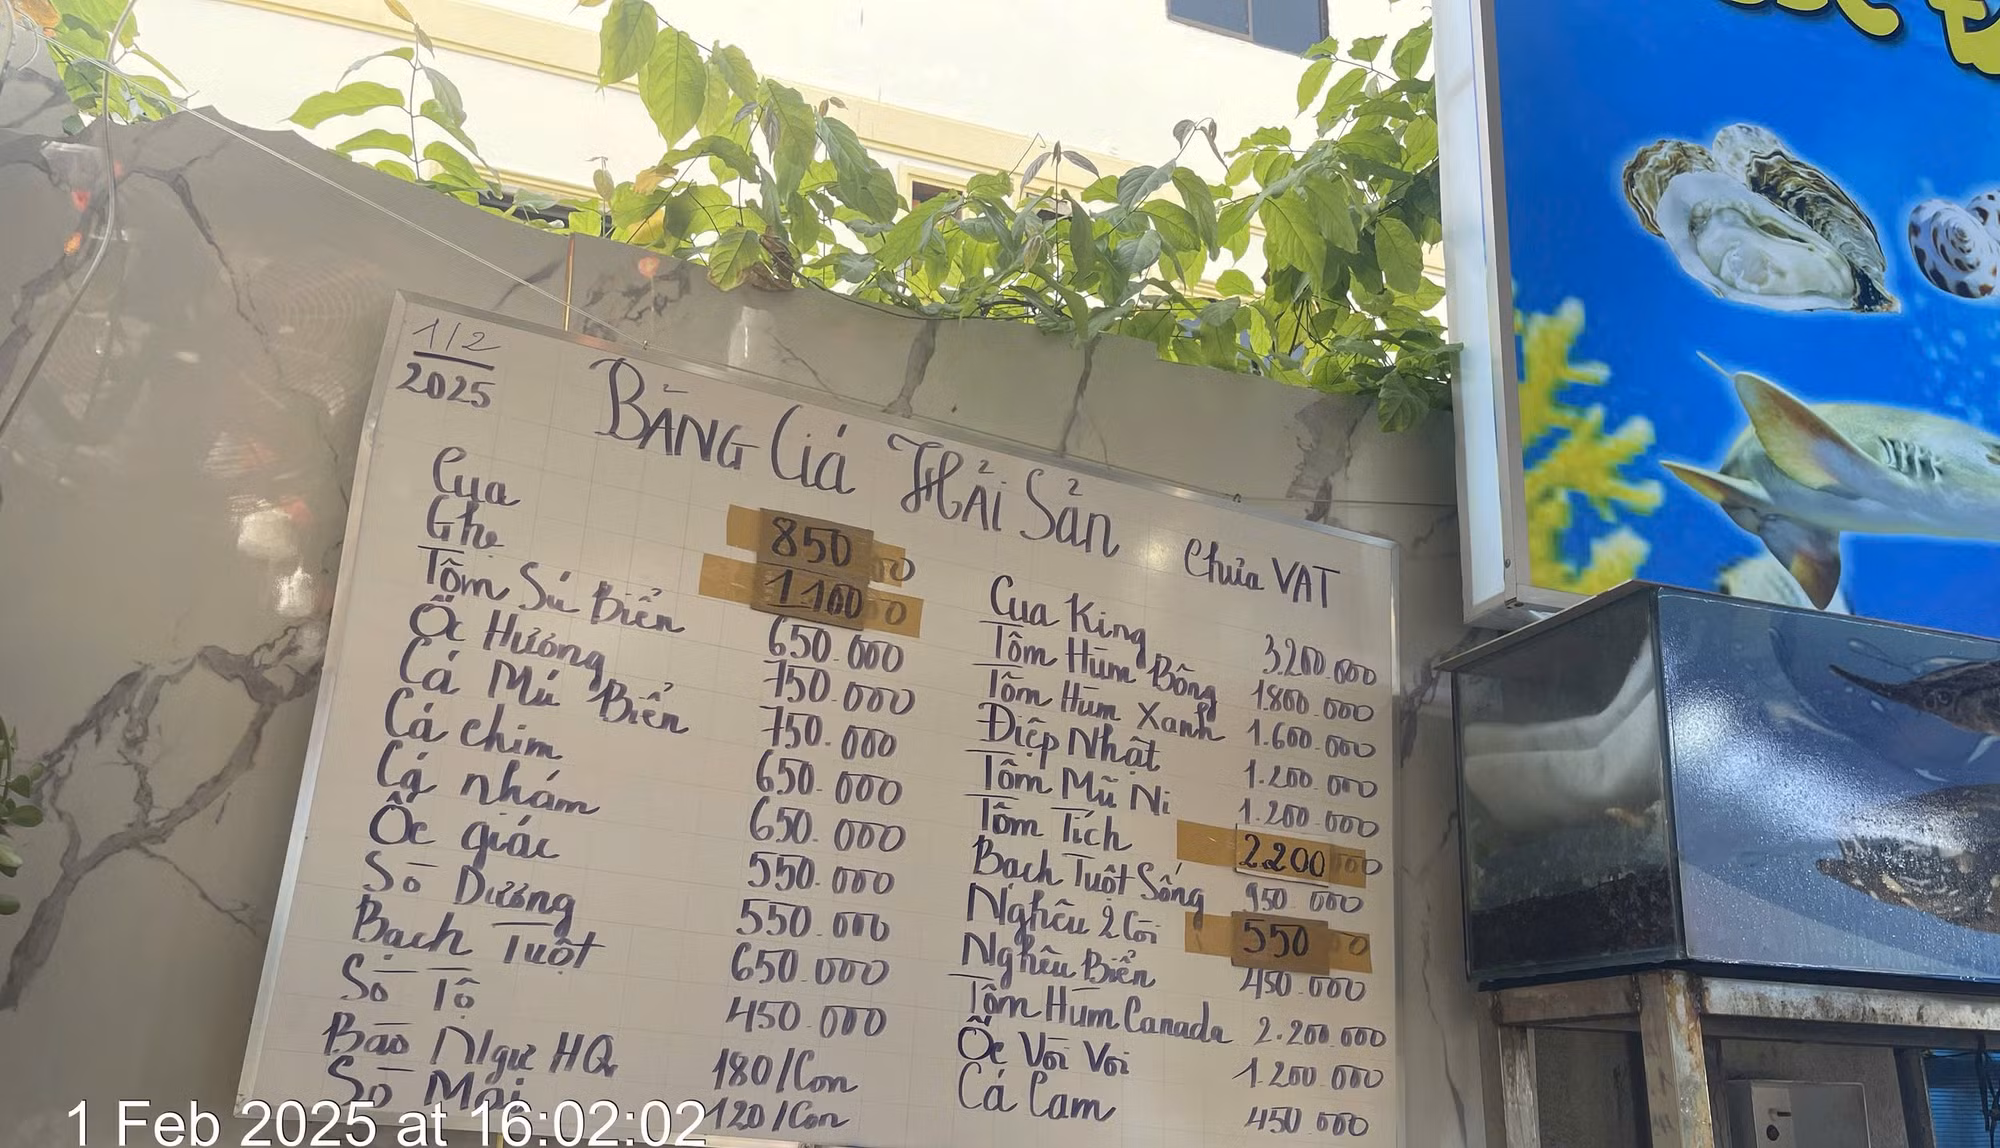 1/2
2025
BẢNG Giá HẢi Sản
Chưa VAT
Cua 850
Ghẹ 1.100
Tôm Sú Biển 650.000
Ốc Hương 750.000
Cá Mú Biển 750.000
Cá chim 650.000
Cá nhám 650.000
Ốc giác 550.000
Sò Dương 550.000
Bạch Tuột 650.000
Sò Tộ 450.000
Bào Ngư HQ 180/Con
Sò Mai 120/Con
Cua King 3.200.000
Tôm Hùm Bông 1.800.000
Tôm Hùm Xanh 1.600.000
Điệp Nhật 1.200.000
Tôm Mũ Ni 1.200.000
Tôm Tích 2.200
Bạch Tuột Sống 950.000
Nghêu 2 Còi 550
Nghêu Biển 450.000
Tôm Hùm Canada 2.200.000
Ốc Vòi Voi 1.200.000
Cá Cam 450.000
1 Feb 2025 at 16:02:02